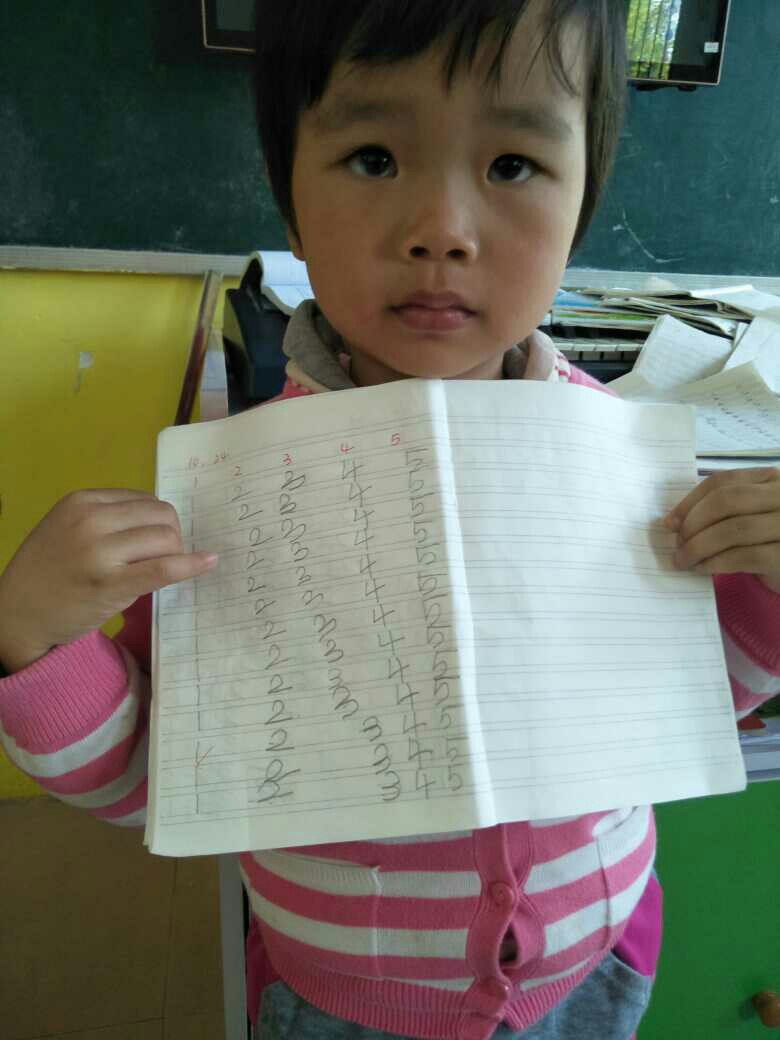 10.24
1 2 3 4 5
1 2 3 4 5
1 2 3 4 5
1 2 3 4 5
1 2 3 4 5
1 2 3 4 5
1 2 3 4 5
1 2 3 4 5
1 2 3 4 5
1 2 3 4 5
1 2 3 4 5
1 2 3 4 5
1 2 3 4 5
1 2 3 4 5